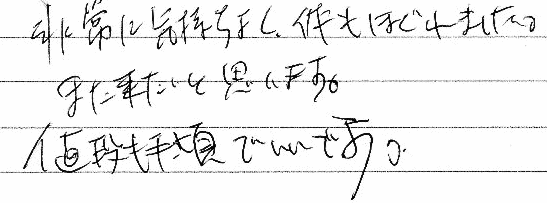 非常に気持ちよく、体もほぐれました。
また来たいと思います。
値段も手頃でいいです。